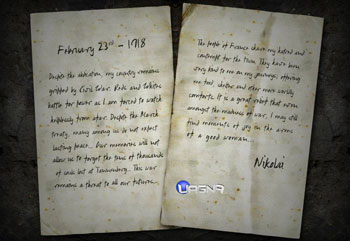 February 23rd - 1918
Despite the abdication, my country remains
gripped by Civil War. Reds and Whites
battle for power as I am forced to watch
helplessly from afar. Despite the March
treaty, many among us do not expect
lasting peace... Our memories will not
allow us to forget the tens of thousands
of souls lost at Tannenberg. This war
remains a threat to all our futures...
The people of France share my hatred and
contempt for the Hun. They have been
very kind to me on my journeys, offering
me food, shelter and other more worldly
comforts. It is a great relief that even
amongst the madness of war, I may still
find moments of joy in the arms
of a good woman...
Nikolai
UAGNA